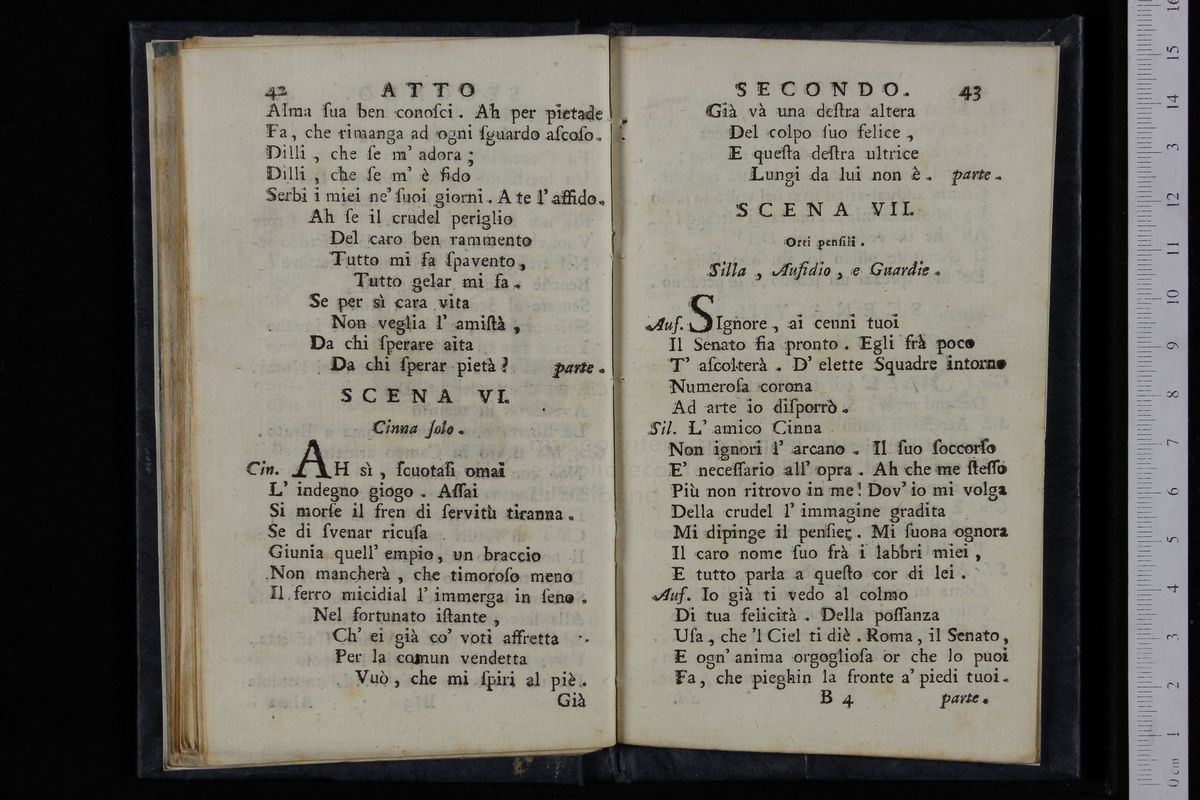 42 ATTO
Alma ſua ben conoſci. Ah per pietade
Fa, che rimanga ad ogni ſguardo aſcoſo.
Dilli, che ſe m' adora;
Dilli, che ſe m' è fido
Serbi i miei ne' ſuoi giorni. A te l' affido.
Ah ſe il crudel periglio
Del caro ben rammento
Tutto mi fa ſpavento,
Tutto gelar mi fa.
Se per sì cara vita
Non veglia l' amiſtà,
Da chi ſperare aita
Da chi ſperar pietà? parte.
SCENA VI.
Cinna ſolo.
Cin. AH sì, ſcuotaſi omai
L' indegno giogo. Aſſai
Si morſe il fren di ſervitù tiranna.
Se di ſvenar ricuſa
Giunia quell' empio, un braccio
Non mancherà, che timoroſo meno
Il ferro micidial l' immerga in ſeno.
Nel fortunato iſtante,
Ch' ei già co' voti affretta
Per la comun vendetta
Vuò, che mi ſpiri al piè.
Già
SECONDO. 43
Già và una deſtra altera
Del colpo ſuo felice,
E queſta deſtra ultrice
Lungi da lui non è. parte.
SCENA VII.
Orti penſili.
Silla, Aufidio, e Guardie.
Auf. SIgnore, ai cenni tuoi
Il Senato fia pronto. Egli frà poco
T' aſcolterà. D' elette Squadre intorno
Numeroſa corona
Ad arte io diſporrò.
Sil. L' amico Cinna
Non ignori l' arcano. Il ſuo ſoccorſo
E' neceſſario all' opra. Ah che me ſteſſo
Più non ritrovo in me! Dov' io mi volga
Della crudel l' immagine gradita
Mi dipinge il penſier. Mi ſuona ognora
Il caro nome ſuo frà i labbri miei,
E tutto parla a queſto cor di lei.
Auf. Io già ti vedo al colmo
Di tua felicità. Della poſſanza
Uſa, che 'l Ciel ti diè. Roma, il Senato,
E ogn' anima orgoglioſa or che lo puoi
Fa, che pieghin la fronte a' piedi tuoi.
B 4 parte.